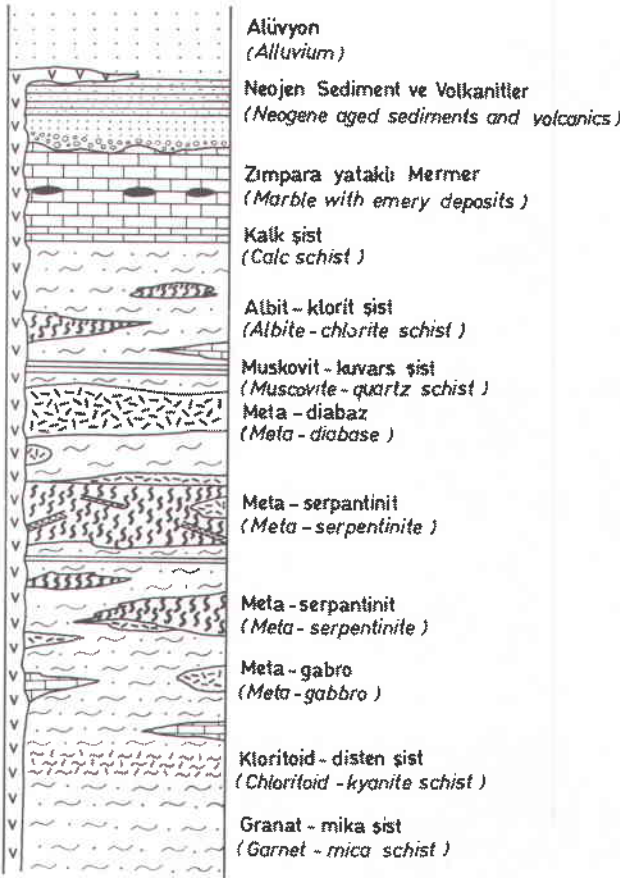 Alüvyon
(Alluvium)
Neojen Sediment ve Volkanitler
(Neogene aged sediments and volcanics)
Zımpara yataklı Mermer
(Marble with emery deposits)
Kalk şist
(Calc schist)
Albit - klorit şist
(Albite - chlorite schist)
Muskovit - kuvars şist
(Muscovite - quartz schist)
Meta - diabaz
(Meta - diabase)
Meta - serpantinit
(Meta - serpentinite)
Meta - serpantinit
(Meta - serpentinite)
Meta - gabro
(Meta - gabbro)
Kloritoid - disten şist
(Chloritoid - kyanite schist)
Granat - mika şist
(Garnet - mica schist)